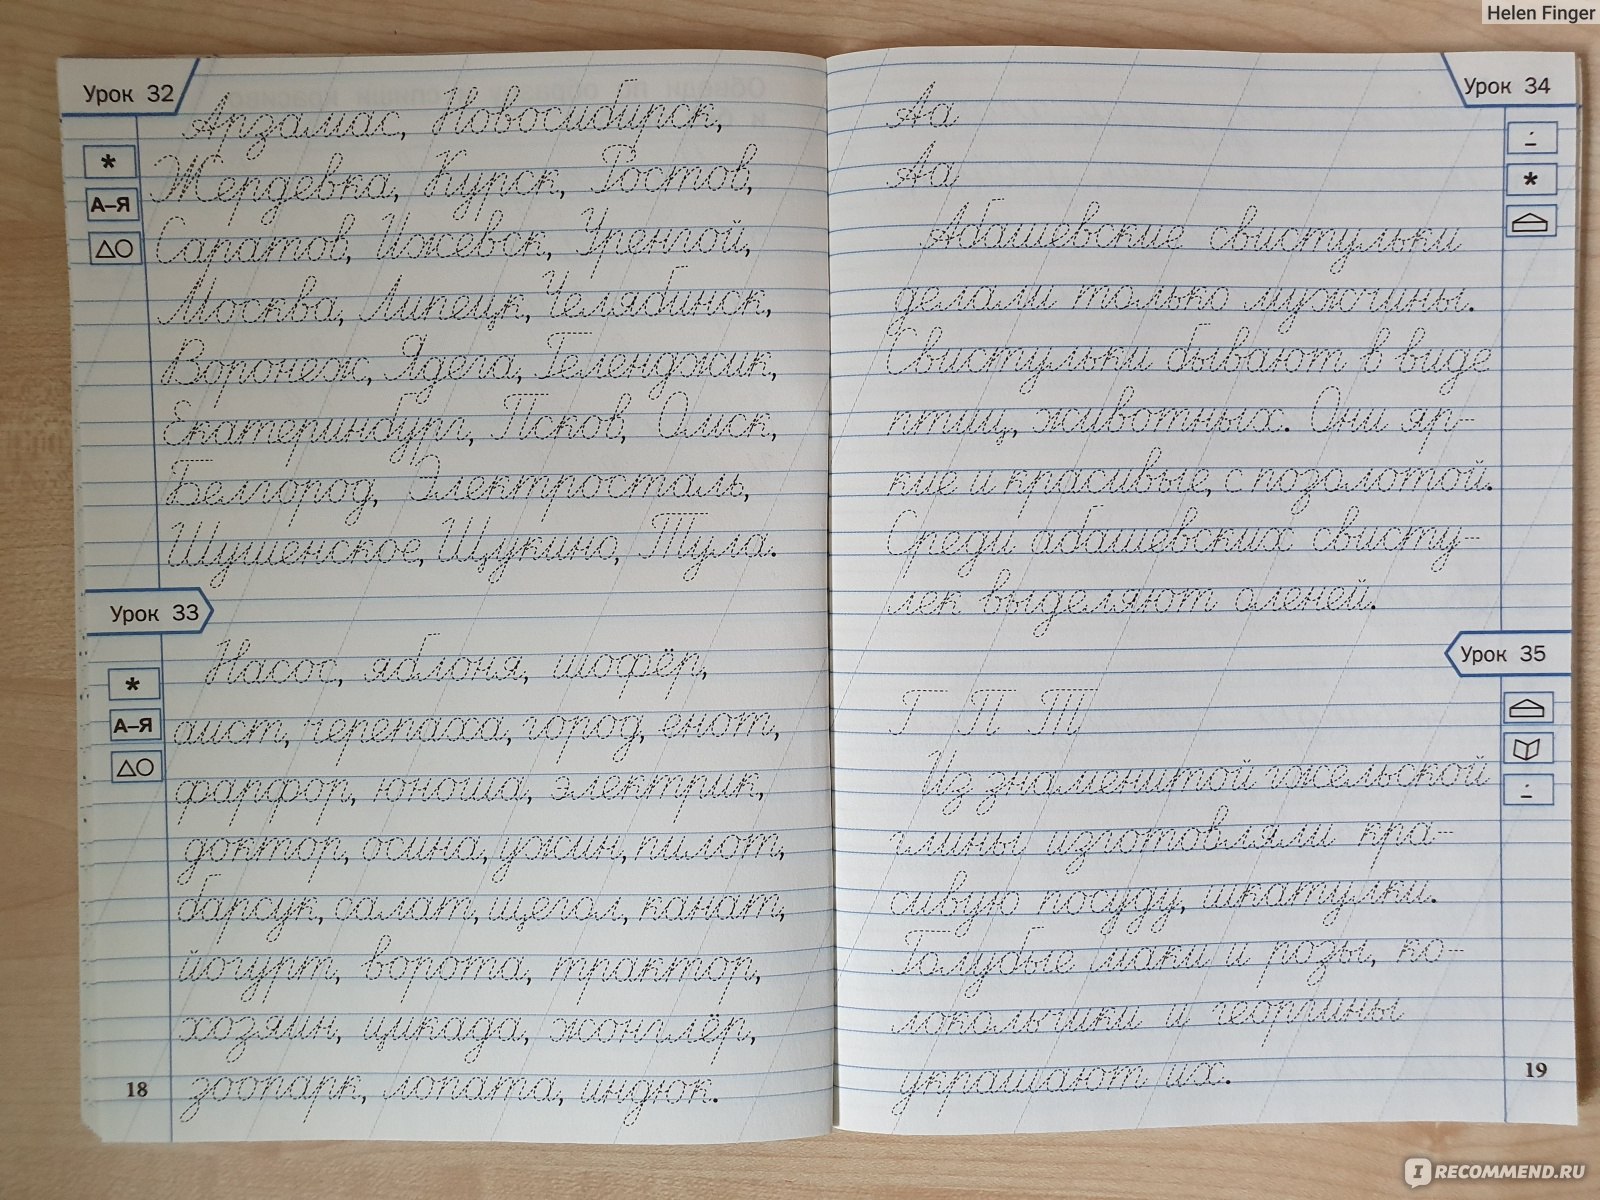 Helen Finger
Урок 32
Арзамас, Новосибирск,
Жердевка, Курск, Ростов,
Саратов, Ижевск, Уренгой,
Москва, Липецк, Челябинск,
Воронеж, Ядега, Геленджик,
Екатеринбург, Псков, Омск,
Белгород, Электросталь,
Шушенское, Щукино, Тула.
А–Я
Урок 33
Насос, яблоня, шофёр,
аист, черепаха, город, енот,
фарфор, юноша, электрик,
доктор, осина, ужин, пилот,
барсук, салат, щегол, канат,
йогурт, ворота, трактор,
хозяин, цикада, жонглёр,
зоопарк, лопата, индюк.
А–Я
18
Урок 34
Аа
Аа
Абашевские свистульки
делали только мужчины.
Свистульки бывают в виде
птиц, животных. Они яр-
кие и красивые, с позолотой.
Среди абашевских свисту-
лек выделяют оленей.
Урок 35
Г П Т
Из знаменитой гжельской
глины изготовляли кра-
сивую посуду, шкатулки.
Голубые маки и розы, ко-
локольчики и георгины
украшают их.
19
IRECOMMEND.RU